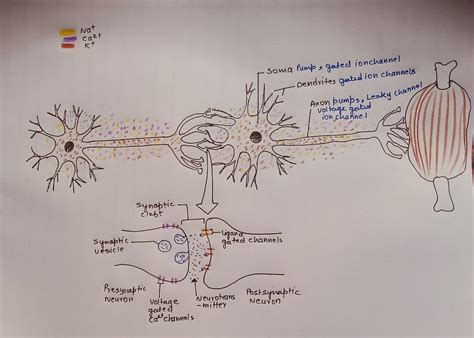 Na+
Ca2+
K+
Soma Pump, gated ionchannel
Dendrites gated ion channels
Axon pumps, Leaky channel
voltage gated
ion channel
Synaptic
cleft
Synaptic
vesicle
Ligand
gated channels
Presynaptic
Neuron
Voltage
gated
Ca2+ channels
Neurotrans
-mitter
Postsynaptic
Neuron